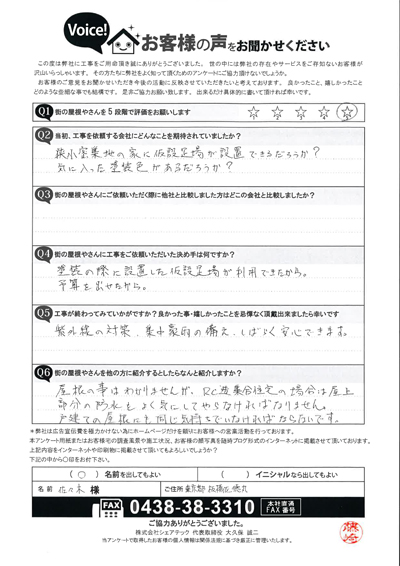 Voice!
お客様の声をお聞かせください
この度は弊社に工事をご用命頂き誠にありがとうございました。世の中には弊社の存在やサービスをご存知ないお客様が
沢山いらっしゃいます。その方たちに弊社をよく知って頂くためのアンケートにご協力頂けないでしょうか。
お客様のご意見をお聞かせいただき今後の活動に反映させていただきたいと考えております。良かったこと、嬉しかったこと
どのような些細な事でも結構です。是非ご協力お願い致します。出来るだけ具体的に書いて頂ければ幸いです。
Q1 街の屋根やさんを5段階で評価をお願いします
☆ ☆ ☆ ☆ ☆
Q2 当初、工事を依頼する会社にどんなことを期待されていましたか?
狭小密集地の家に仮設足場が設置できるだろうか?
気に入った塗装色があるだろうか?
Q3 街の屋根やさんにご依頼いただく際に他社と比較しました方はどこの会社と比較しましたか?
Q4 街の屋根やさんに工事をご依頼いただいた決め手は何ですか?
塗装の際に設置した仮設足場が利用できたから。
予算を出せたから。
Q5 工事が終わってみていかがですか?良かった事・嬉しかったことを忌憚なく頂戴出来ましたら幸いです
紫外線の対策、集中豪雨の備え、しばらく安心できます。
Q6 街の屋根やさんを他の方に紹介するとしたらなんと紹介しますか?
屋根の事はわかりませんが、RC造集合住宅の場合は屋上
部分の防水をよく気にしてやらなければなりません。
戸建ての屋根にも同じ気持でいなければならないです。
*弊社は広告宣伝費を極力かけない為にホームページだけを頼りにお客様への営業活動を行っております。
本アンケート用紙またはお客様宅の調査風景や施工状況、お客様の顔写真を随時ブログ形式のインターネットに掲載させて頂いております。
上記内容をインターネットや印刷物に掲載させて頂いてもよろしいでしょうか?
下記の中から○印をお付け下さい。
(○)名前を出してもよい ( )イニシャルなら出してもよい
名前 佐々木 様 ご住所 東京都 板橋区 徳丸
FAX 0438-38-3310 本社直通 FAX番号
ご協力ありがとうございました。
株式会社シェアテック 代表取締役 大久保 誠二
当アンケートで取得したお客様の個人情報は関係法規に基づき厳正に管理いたします。